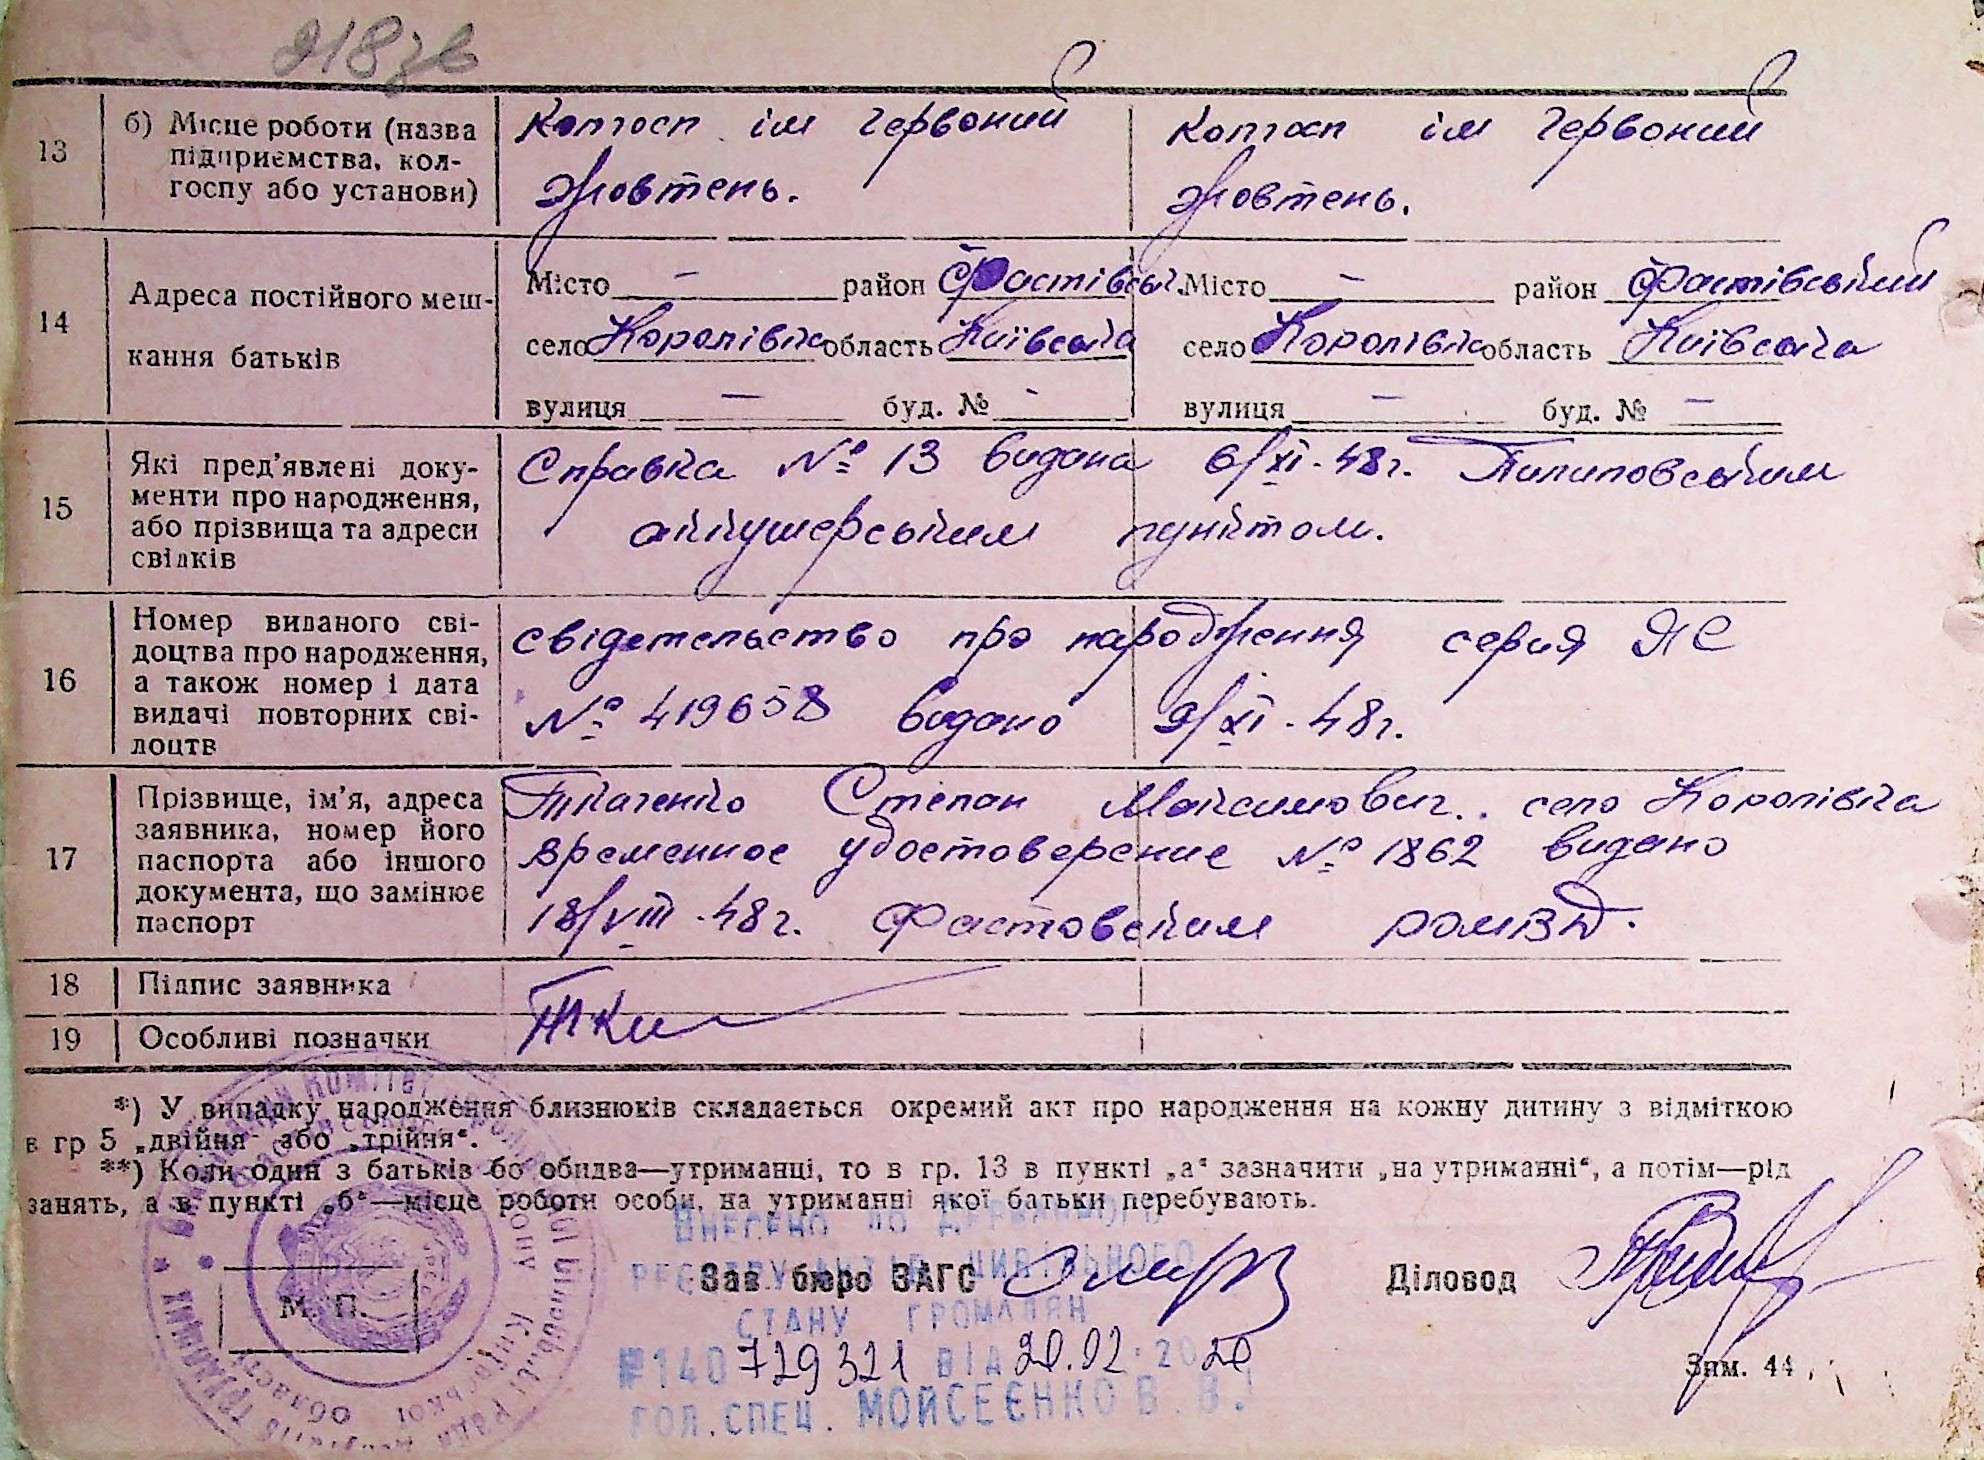 218 зв
13
б) Місце роботи (назва підприємства, колгоспу або установи)
Колгосп ім Червоний Жовтень.
Колгосп ім Червоний Жовтень.
14
Адреса постійного мешкання батьків
Місто — район Фастівськ.
село Королівка область Київська
вулиця — буд. № -
Місто — район Фастівський
село Королівка область Київська
вулиця — буд. № —
15
Які пред'явлені документи про народження, або прізвища та адреси свідків
Справка № 13 видана 6/XI-48г. Пилиповським
аккушерським пунктом.
16
Номер виданого свідоцтва про народження, а також номер і дата видачі повторних свідоцтв
свідетельство про народження серия ЯС
№ 419658 видано 9/XI-48г.
17
Прізвище, ім'я, адреса заявника, номер його паспорта або іншого документа, що замінює паспорт
Ткаченко Степан Максимович. село Королівка
временное удостоверение № 1862 видано
18/VIII-48г. Фастовским РОМВД.
18
Підпис заявника
19
Особливі позначки
*) У випадку народження близнюків складається окремий акт про народження на кожну дитину з відміткою
в гр 5 „двійня" або „трійня".
**) Коли один з батьків бо обидва—утриманці, то в гр. 13 в пункті „а" зазначити „на утриманні", а потім—рід
занять, а в пункті „б"—місце роботи особи, на утриманні якої батьки перебувають.
Внесено до Державного
реєстру актів цивільного
стану громадян
№ 140 729321 від 20.02.2020
гол. спец. Мойсеєнко В. В.
М. П.
Зав. бюро ЗАГС
Діловод
Зам. 44